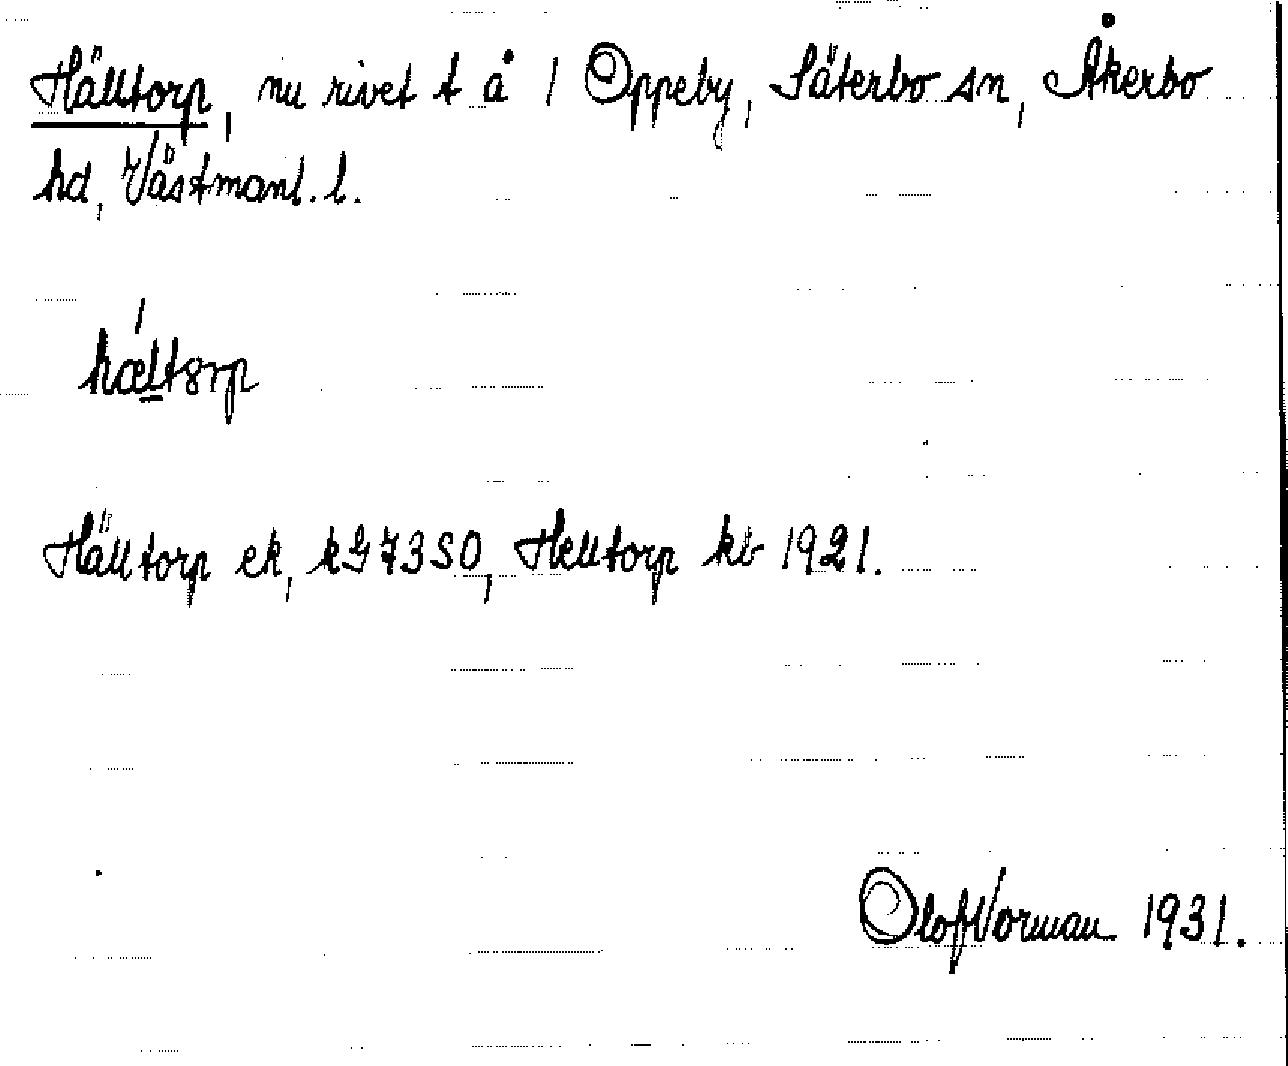 Hälltorp, nu rivet t å 1 Oppeby, Säterbo sn, Åkerbo
hd, Västmanl. l.
hælltorp
Hälltorp ek, kG73SO, Helltorp kb 1921.
Olof Vorman 1931.